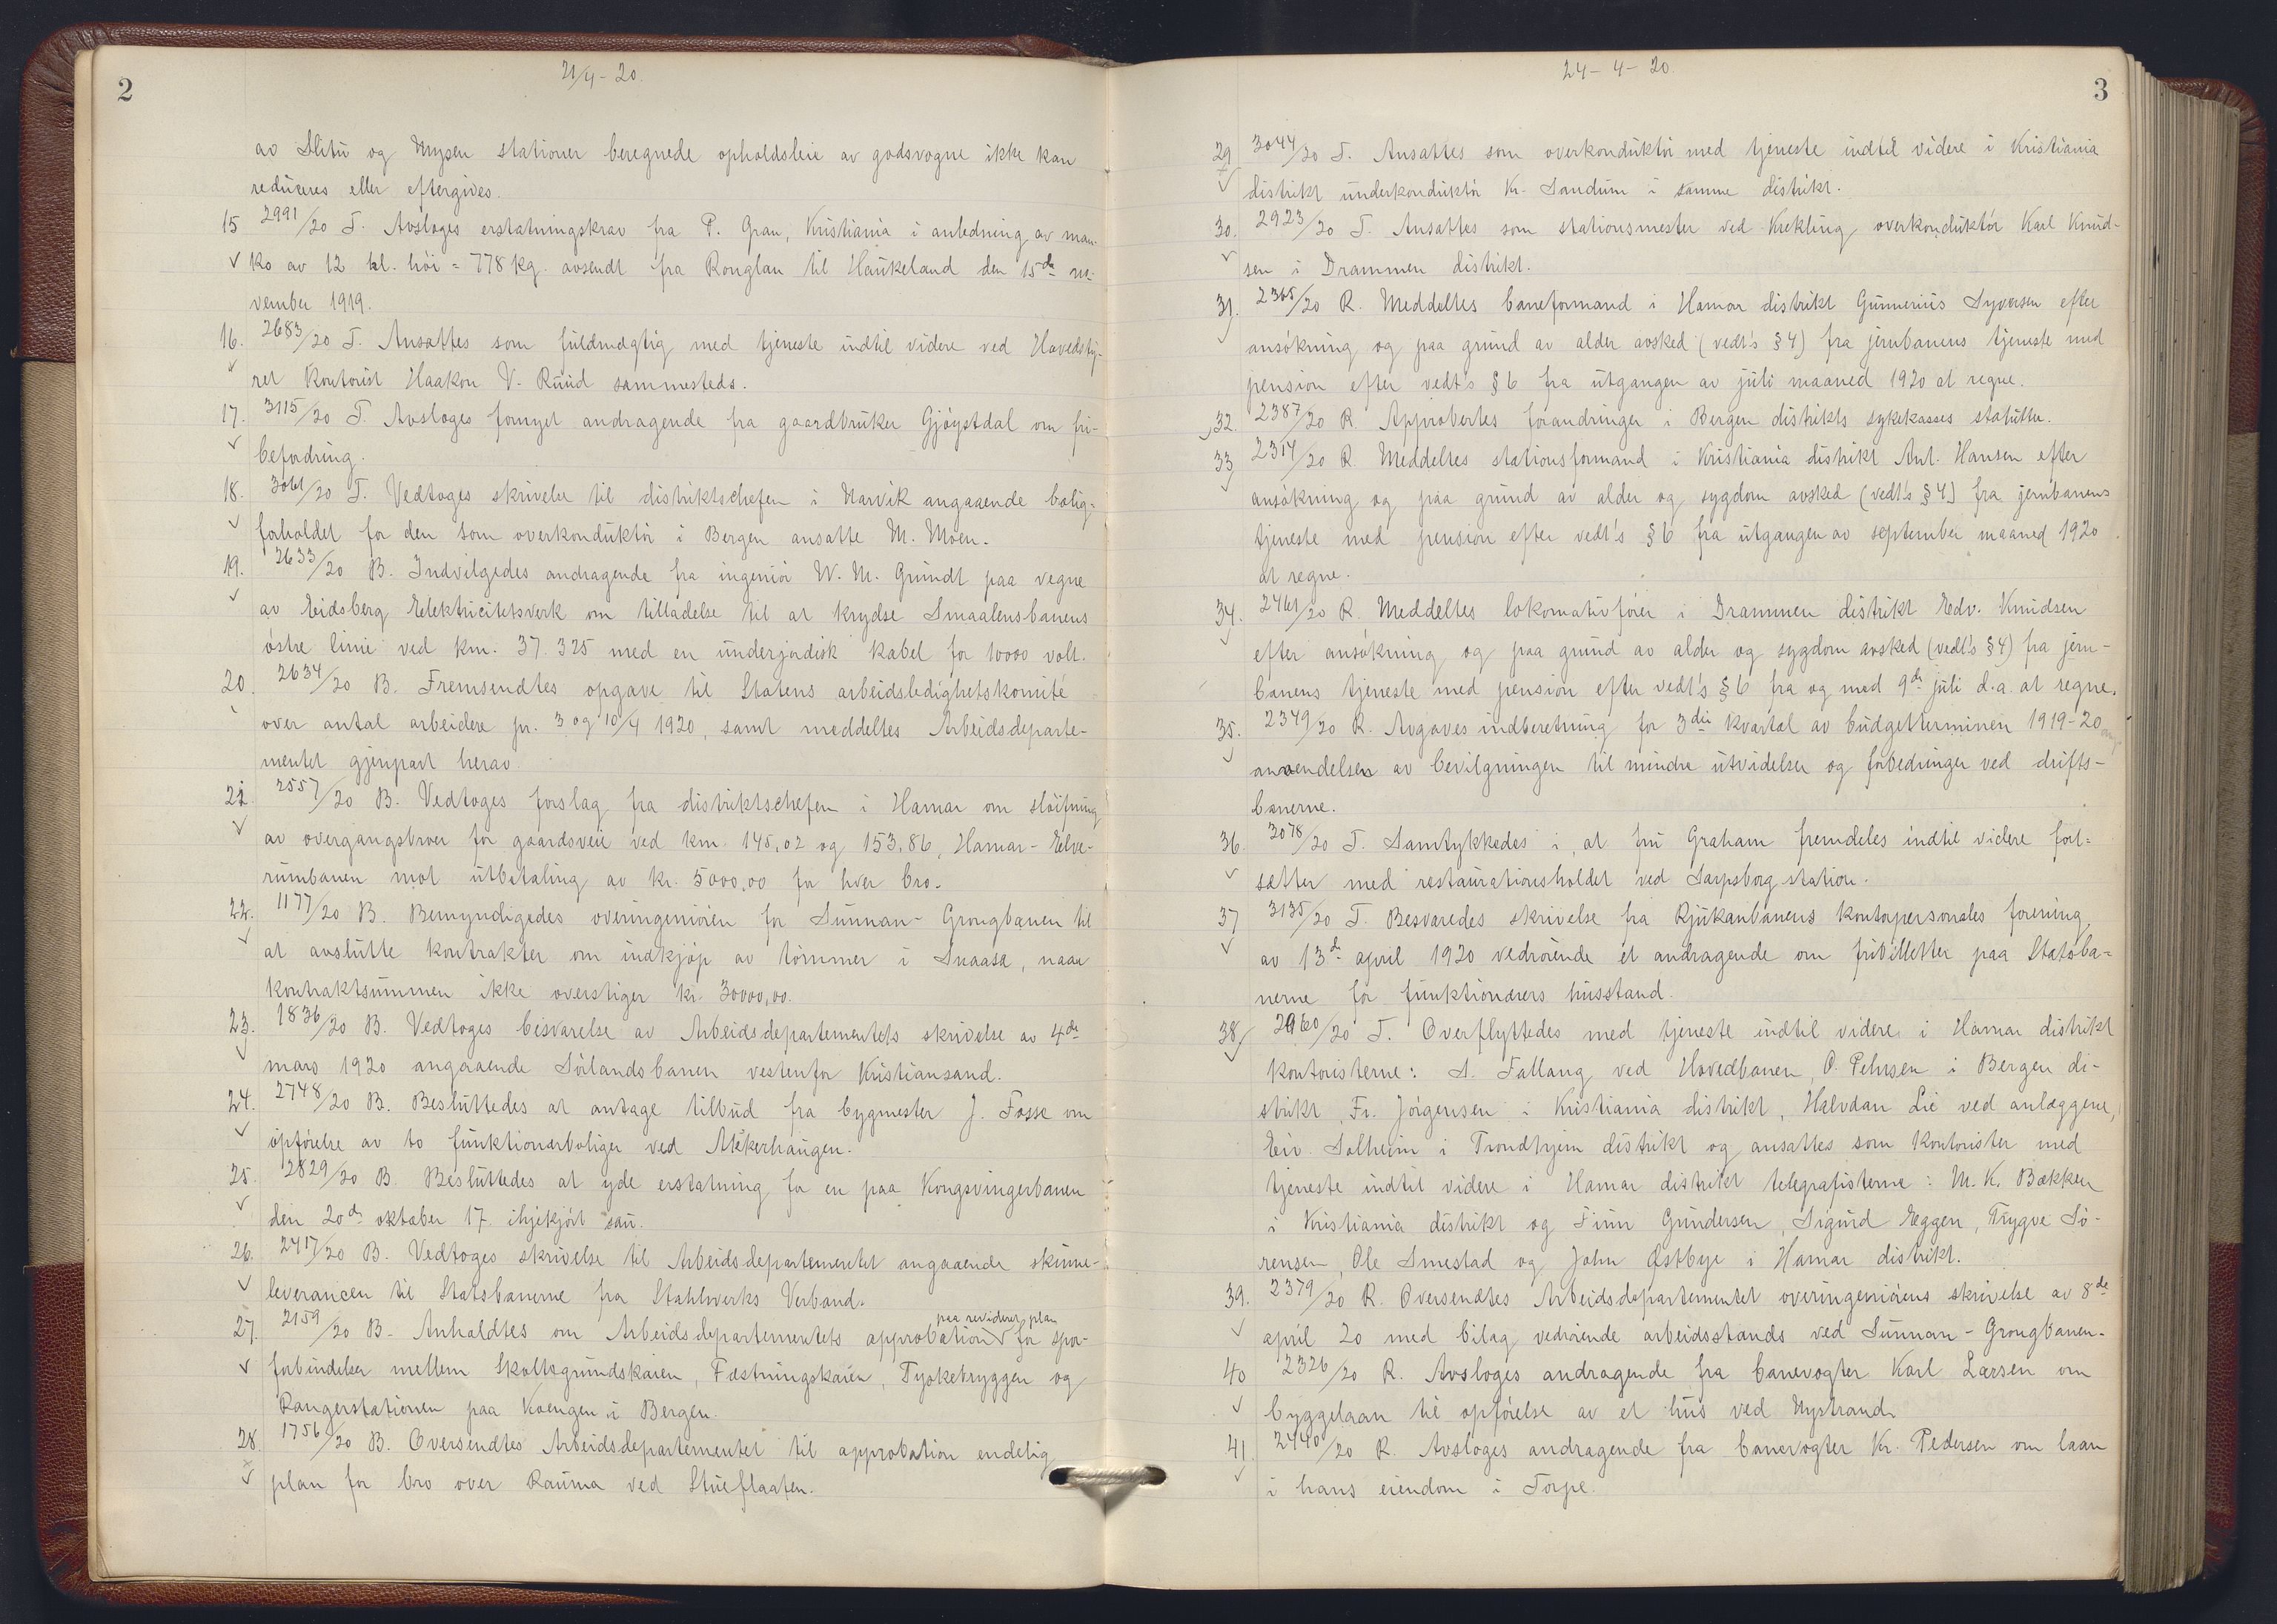 2
21/4 - 20.
av Slitu og Mysen stationer beregnede opholdsleie av godsvogne ikke kan
reduceres eller eftergives.
15 2991/20 T. Avsloges erstatningskrav fra P. Gran, Kristiania i anledning av man-
ko av 12 bl. höi = 778 kg. avsendt fra Ronglan til Haukeland den 15de no-
vember 1919.
16. 2683/20 T. Ansattes som fuldmægtig med tjeneste indtil videre ved Hovedsty-
ret Kontorist Haakon V. Ruud sammesteds.
17. 3115/20 T. Avsloges fornyet andragende fra gaardbruker Gjöystdal om fri-
befordring.
18. 3061/20 T. Vedtoges skrivelse til distriktschefen i Narvik angaaende bolig-
forholdet for den som overkonduktör i Bergen ansatte M. Moen.
19. 2633/20 B. Indvilgedes andragende fra ingeniör W. M. Grundt paa vegne
av Eidsberg Elektricitetsverk om tilladelse til at krydse Smaalensbanens
östre linie ved km. 37.325 med en underjordisk kabel for 10000 volt.
20. 2634/20 B. Fremsendtes opgave til Statens arbeidsledighetskomité
over antal arbeidere pr. 3 og 10/4 1920, samt meddeltes Arbeidsdeparte-
mentet gjenpart herav.
21. 2557/20 B. Vedtoges forslag fra distriktschefen i Hamar om slöifning
av overgangsbroer for gaardsveie ved km. 145,02 og 153,86, Hamar - Elve-
rumbanen mot utbetaling av kr. 5000,00 for hver bro.
22. 1177/20 B. Bemyndigedes overingeniören for Sunnan - Grongbanen til
at avslutte kontrakter om indkjöp av tömmer i Snaasa, naar
kontraktsummen ikke overstiger kr. 30000,00.
23. 1836/20 B. Vedtoges besvarelse av Arbeidsdepartementets skrivelse av 4de
mars 1920 angaaende Sörlandsbanen vestenfor Kristiansand.
24. 2748/20 B. Besluttedes at antage tilbud fra bygmester J. Fosse om
opförelse av to funktionærboliger ved Akkerhaugen.
25. 2829/20 B. Besluttedes at yde erstatning for en paa Kongsvingerbanen
den 20de oktober 17. ihjelkjört sau.
26. 2417/20 B. Vedtoges skrivelse til Arbeidsdepartementet angaaende skinne-
leverancen til Statsbanerne fra Stahlwerks Verband.
paa revideret plan
27. 2159/20 B. Anholdtes om Arbeidsdepartementets approbation for spor-
forbindelser mellem Skoltegrundskaien, Fæstningskaien, Tyskebryggen og
Rangerstationen paa Koengen i Bergen.
28. 1756/20 B. Oversendtes Arbeidsdepartementet til approbation endelig
plan for bro over Rauma ved Stueflaaten.
3
24 - 4 - 20.
29 3044/20 T. Ansattes som overkonduktör med tjeneste indtil videre i Kristiania
distrikt underkonduktör Kr. Sandum i samme distrikt.
30. 2923/20 T. Ansattes som stationsmester ved Krekling overkonduktör Karl Knud-
sen i Drammen distrikt.
31. 2365/20 R. Meddeltes baneformand i Hamar distrikt Gunnerius Syversen efter
ansökning og paa grund av alder avsked (vedt's § 4) fra jernbanens tjeneste med
pension efter vedt's § 6 fra utgangen av juli maaned 1920 at regne.
32. 2387/20 R. Approbertes forandringer i Bergen distrikts sykekasses statutter.
33. 2314/20 R. Meddeltes stationsformand i Kristiania distrikt Ant. Hansen efter
ansökning og paa grund av alder og sygdom avsked (vedt's § 4) fra jernbanens
tjeneste med pension efter vedt's § 6 fra utgangen av september maaned 1920
at regne.
34. 2461/20 R. Meddeltes lokomotivförer i Drammen distrikt Edv. Knudsen
efter ansökning og paa grund av alder og sygdom avsked (vedt's § 4) fra jern-
banens tjeneste med pension efter vedt's § 6 fra og med 9de juli d.a. at regne.
35. 2349/20 R. Avgaves indberetning for 3die kvartal av budgetterminen 1919-20 ang.
anvendelsen av bevilgningen til mindre utvidelser og forbedringer ved drifts-
banerne.
36. 3078/20 T. Samtykkedes i, at fru Graham fremdeles indtil videre fort-
sætter med restaurationsholdet ved Sarpsborg station.
37 3135/20 T. Besvaredes skrivelse fra Rjukanbanens kontorpersonales forening
av 13de april 1920 vedrörende et andragende om fribilletter paa Statsba-
nerne for funktionærers husstand.
38. 2960/20 T. Overflyttedes med tjeneste indtil videre i Hamar distrikt
kontoristerne: S. Fallang ved Hovedbanen, O. Pehrsen i Bergen di-
strikt, Fr. Jörgensen i Kristiania distrikt, Halvdan Lie ved anlæggene,
Eiv. Solheim i Trondhjem distrikt og ansattes som kontorister med
tjeneste indtil videre i Hamar distrikt telegrafisterne: M. K. Bækken
i Kristiania distrikt og Finn Gundersen, Sigurd Eggen, Trygve Sö-
rensen, Ole Smestad og John Østbye i Hamar distrikt.
39. 2379/20 R. Oversendtes Arbeidsdepartementet overingeniörens skrivelse av 8de
april 20 med bilag vedrörende arbeidsstands ved Sunnan - Grongbanen.
40 2326/20 R. Avsloges andragende fra banevogter Karl Larsen om
byggelaan til opförelse av et hus ved Nystrand.
41. 2440/20 R. Avsloges andragende fra banevogter Kr. Pedersen om laan
i hans eiendom i Torpe.